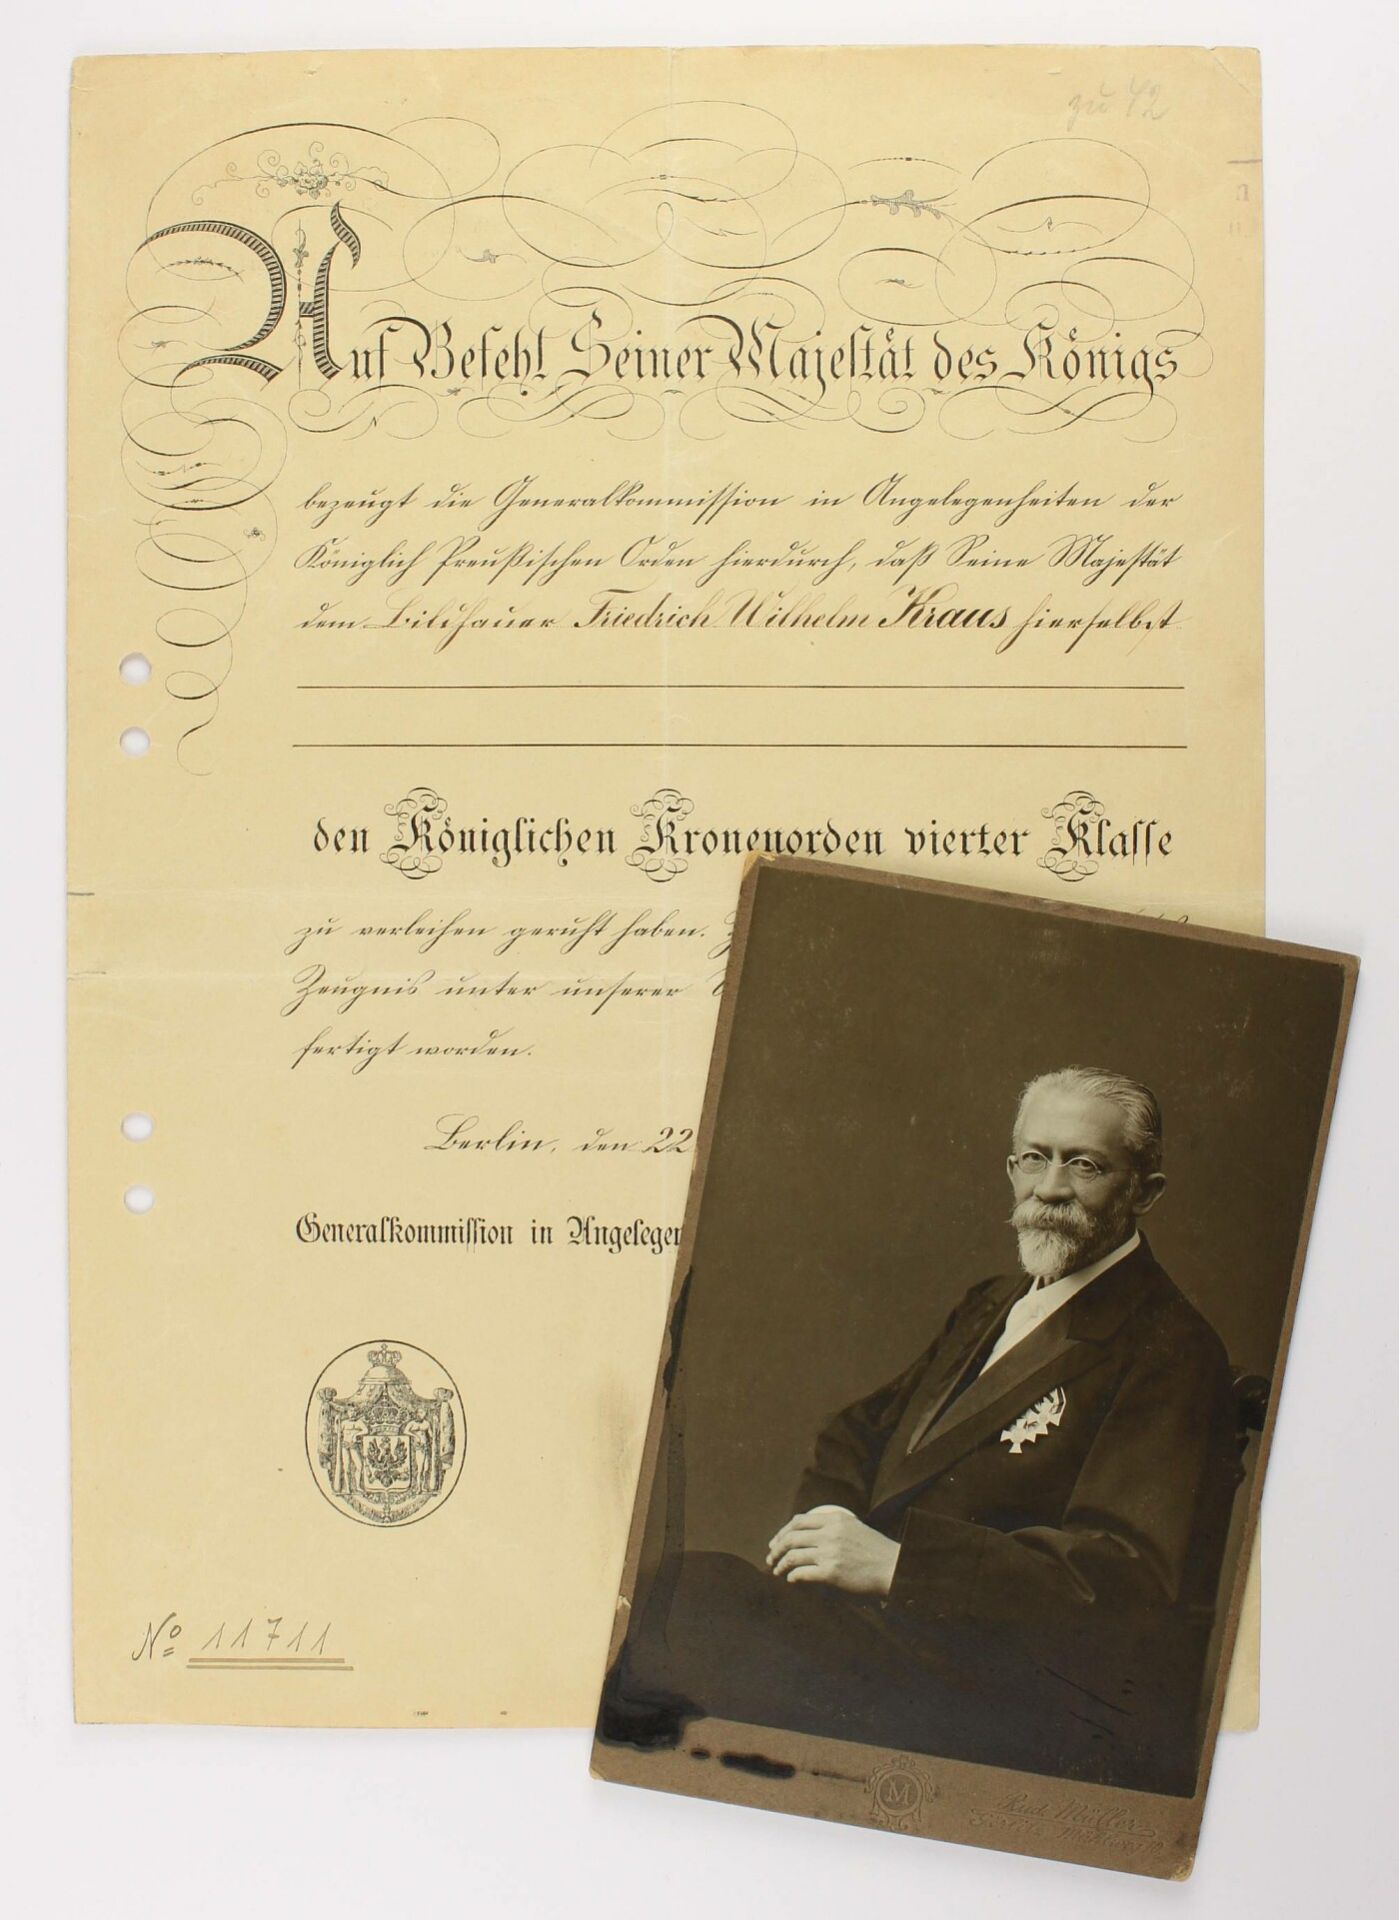 zu 42
Auf Befehl Seiner Majestät des Königs
bezeugt die Generalkommission in Angelegenheiten der
Königlich Preußischen Orden hierdurch, daß Seine Majestät
dem Bildhauer Friedrich Wilhelm Kraus hierselbst
den Königlichen Kronenorden vierter Klasse
zu verleihen geruht haben.
Zeugnis unter unserer
fertigt worden.
Berlin, den 22
Generalkommission in Angelegen
No 11711
M
Rud. Müller
Görlitz